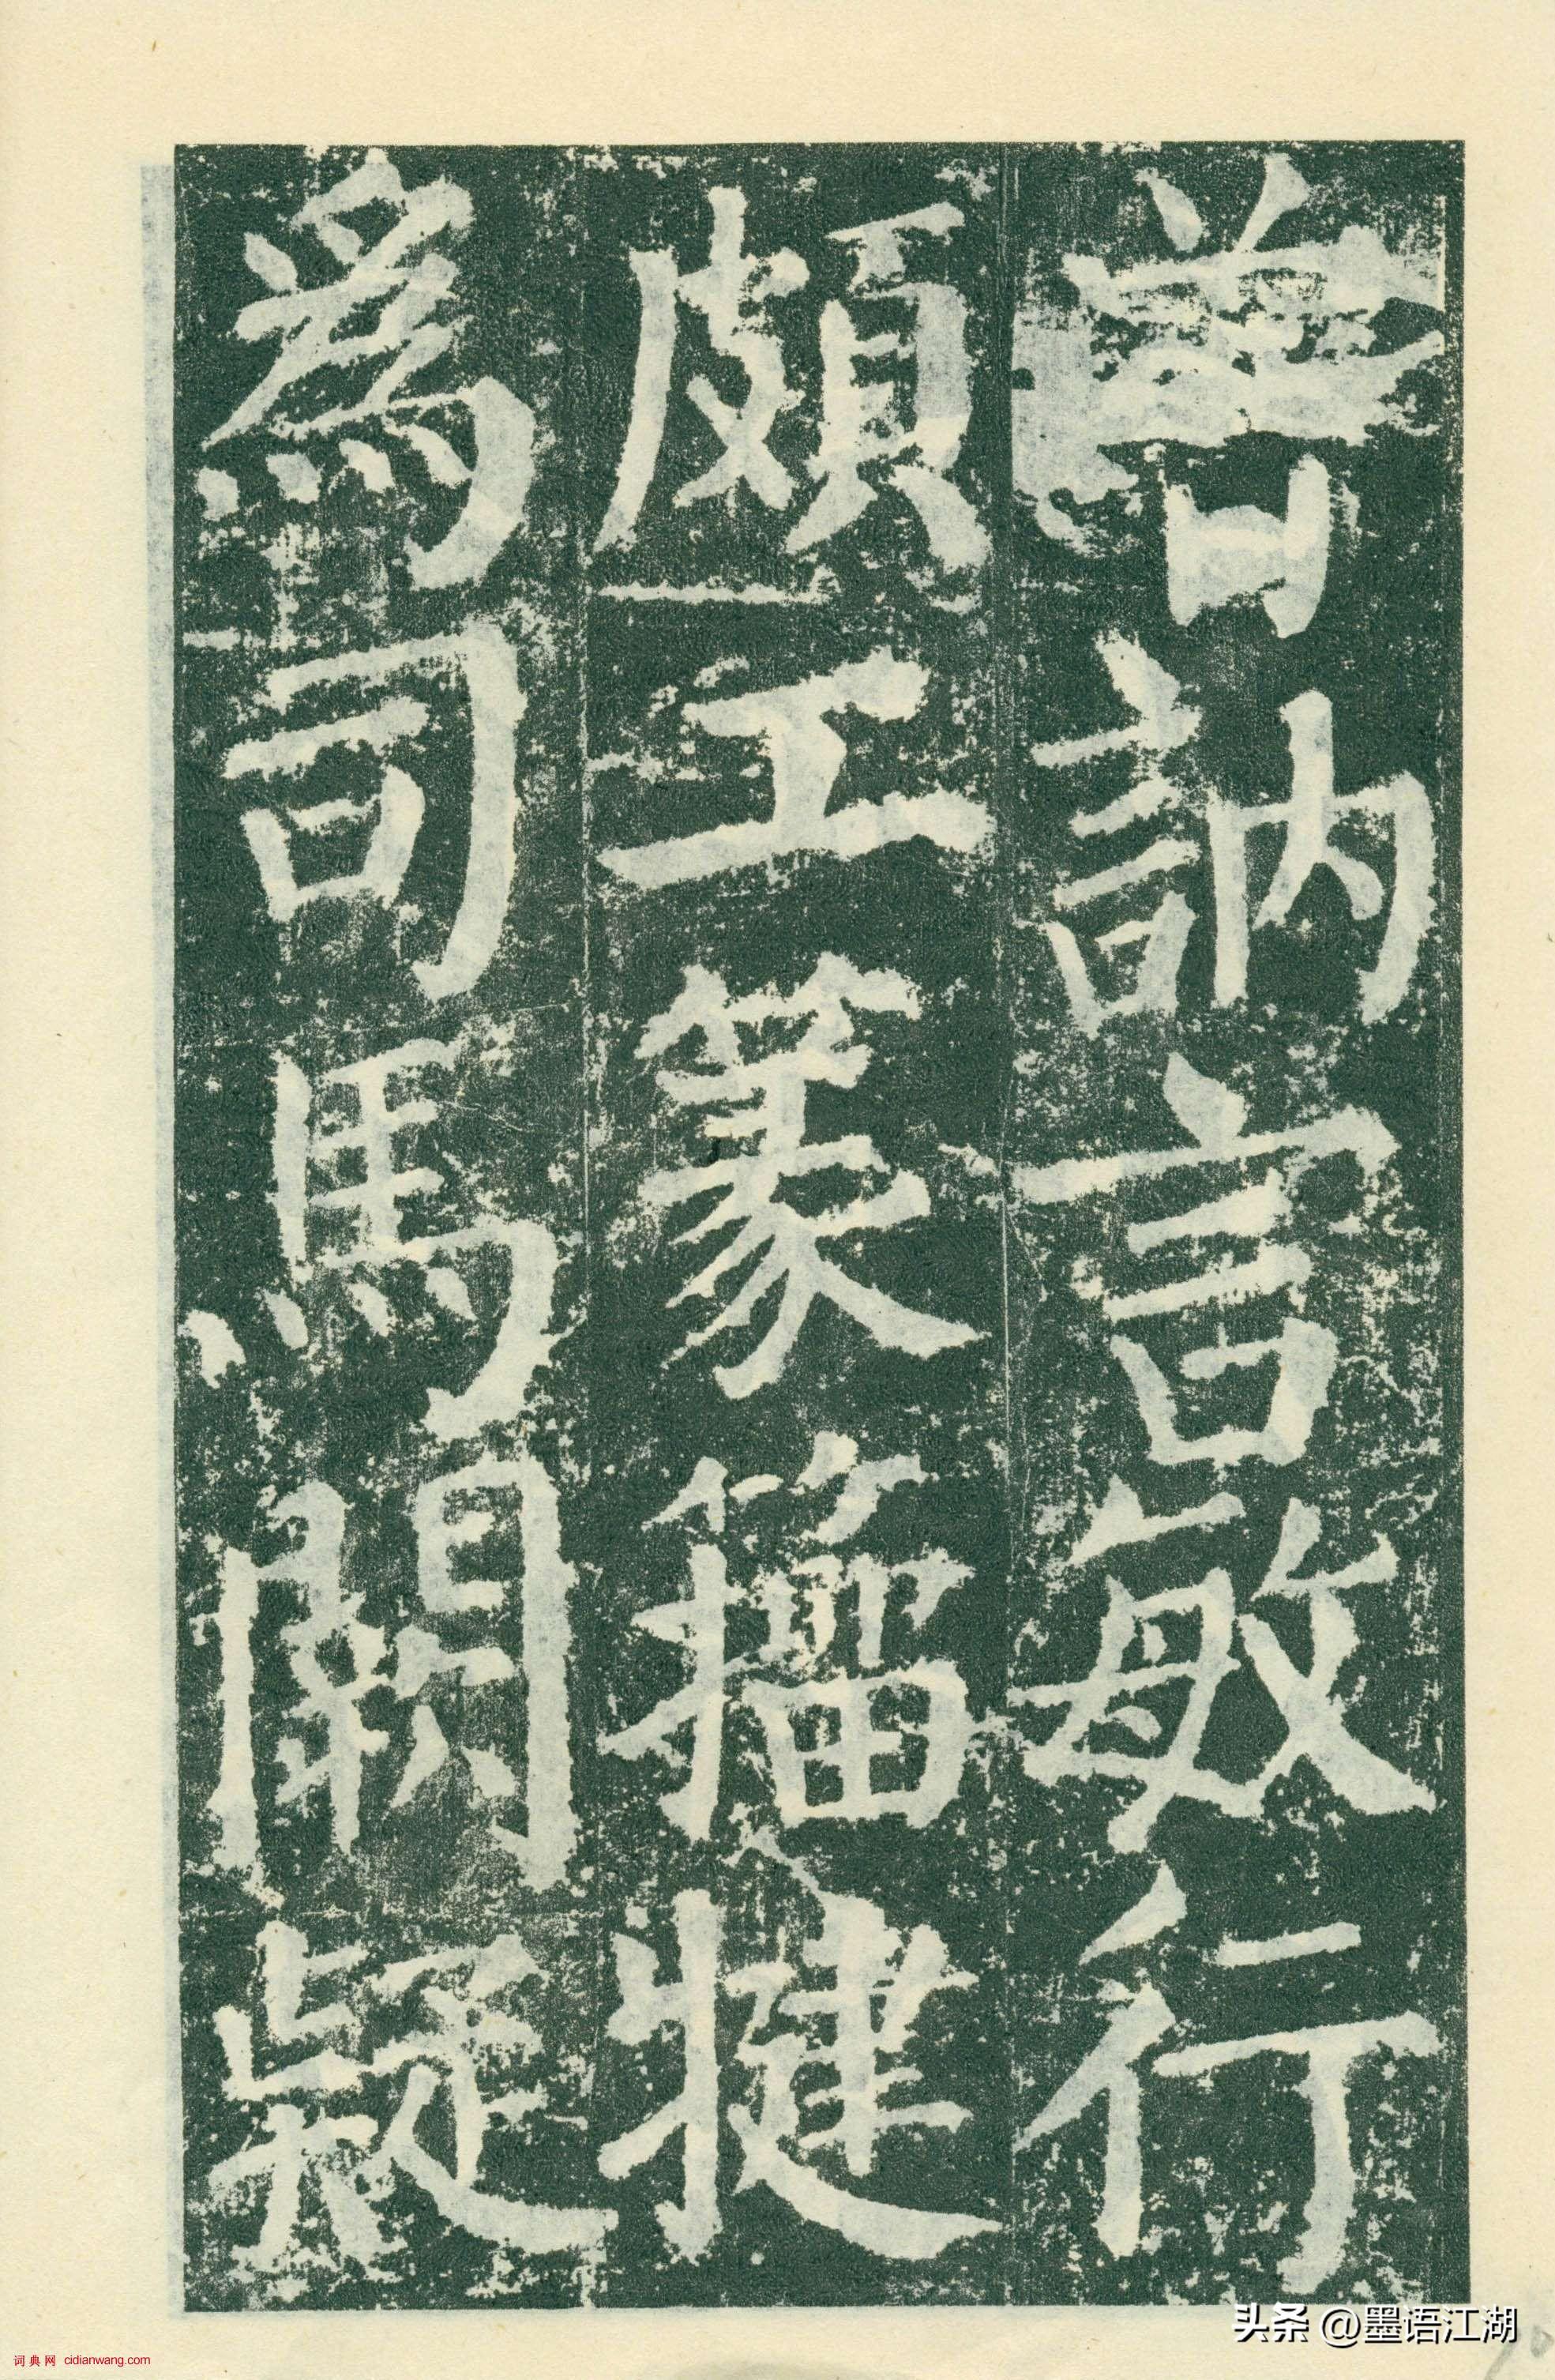 曾訥言敏行
頗工篆籀犍
為司馬闕疑
头条 @墨语江湖
词典网 cidianwang.com